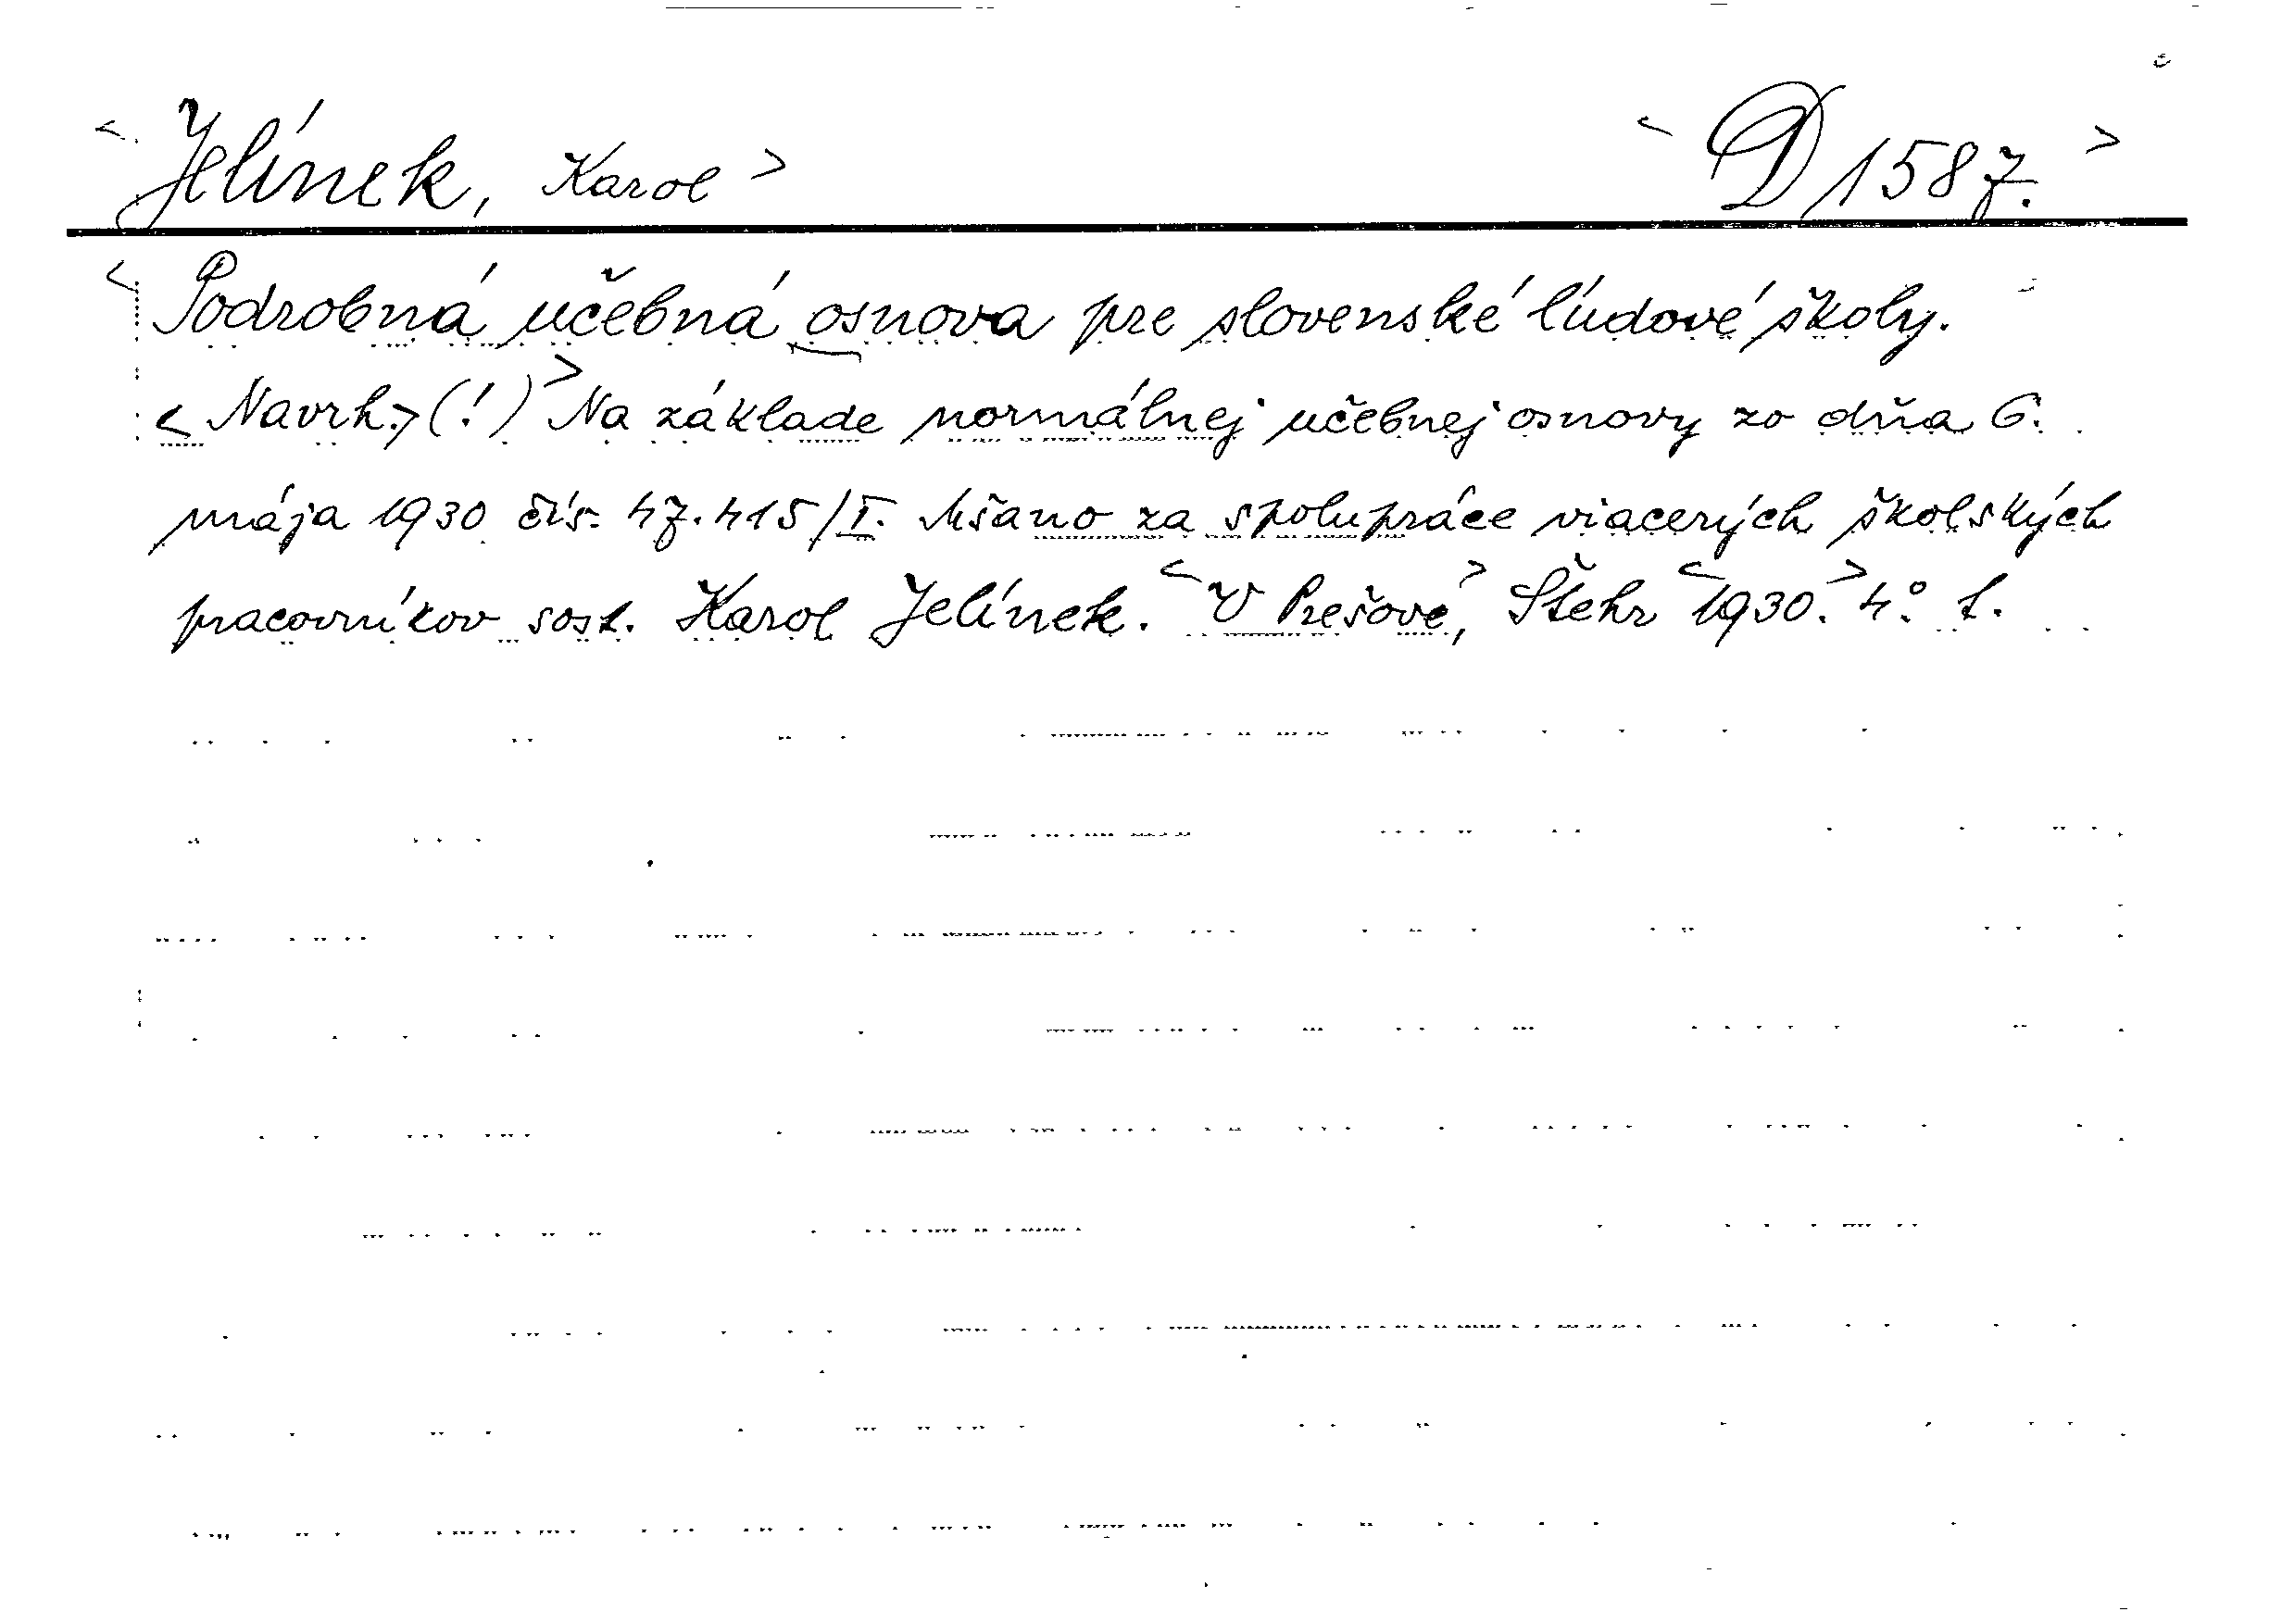 < Jelínek, Karol > < D 1587. >
< Podrobná učebná osnova pre slovenské ľudové školy.
< Navrh. > (!) > Na základe normálnej učebnej osnovy zo dňa 6.
mája 1930 čís. 47.415/I. za spolupráce viacerých školských
pracovníkov sost. Karol Jelínek. < V Prešove, > Štehr < 1930. > 4° t.